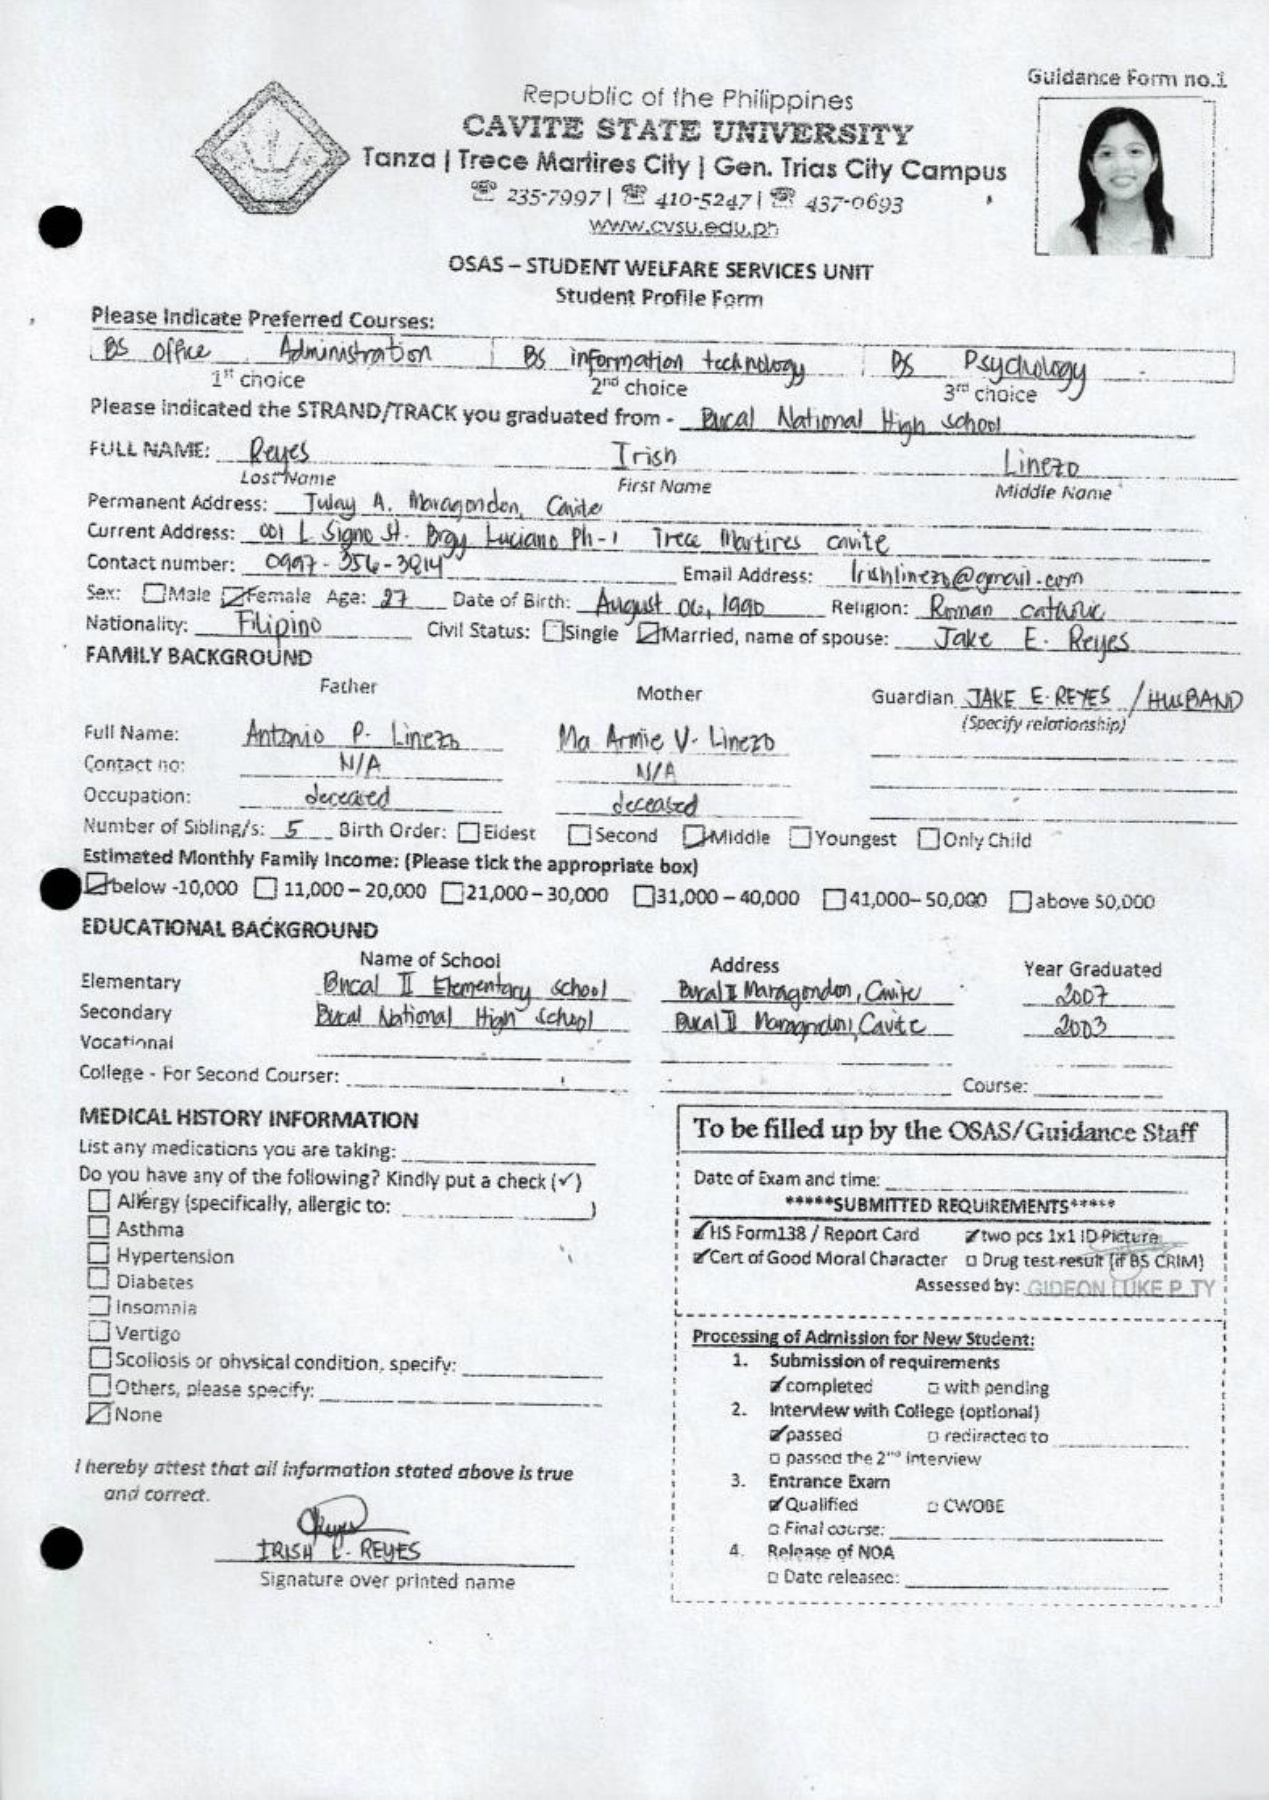 Guidance Form no.1
Republic of the Philippines
CAVITE STATE UNIVERSITY
Tanza | Trece Martires City | Gen. Trias City Campus
☏ 235-7997 | ☏ 410-5247 | ☏ 437-0693
www.cvsu.edu.ph
OSAS – STUDENT WELFARE SERVICES UNIT
Student Profile Form
Please Indicate Preferred Courses:
BS Office Administration BS information technology BS Psychology
1st choice 2nd choice 3rd choice
Please indicated the STRAND/TRACK you graduated from - Bucal National High school
FULL NAME: Reyes Irish Linezo
Last Name First Name Middle Name
Permanent Address: Tulay A. Maragondon, Cavite
Current Address: 001 L Signo St. Brgy Luciano Ph-1 Trece Martires cavite
Contact number: 0997-356-3814 Email Address: Irishlinezo@gmail.com
Sex: ☐Male ☑Female Age: 27 Date of Birth: August 06, 1990 Religion: Roman catholic
Nationality: Filipino Civil Status: ☐Single ☑Married, name of spouse: Jake E. Reyes
FAMILY BACKGROUND
Father Mother Guardian JAKE E. REYES / HUSBAND
(Specify relationship)
Full Name: Antonio P. Linezo Ma Armie V. Linezo
Contact no: N/A N/A
Occupation: deceased deceased
Number of Sibling/s: 5 Birth Order: ☐Eldest ☐Second ☑Middle ☐Youngest ☐Only Child
Estimated Monthly Family Income: (Please tick the appropriate box)
☑below -10,000 ☐ 11,000 – 20,000 ☐21,000 – 30,000 ☐31,000 – 40,000 ☐41,000– 50,000 ☐above 50,000
EDUCATIONAL BACKGROUND
Name of School Address Year Graduated
Elementary Bucal II Elementary school Bucal II Maragondon, Cavite 2007
Secondary Bucal National High school Bucal II Maragondon, Cavite 2003
Vocational
College - For Second Courser: Course:
MEDICAL HISTORY INFORMATION
List any medications you are taking:
Do you have any of the following? Kindly put a check (✓)
☐ Allergy (specifically, allergic to: )
☐ Asthma
☐ Hypertension
☐ Diabetes
☐ Insomnia
☐ Vertigo
☐ Scoliosis or physical condition, specify:
☐ Others, please specify:
☑ None
I hereby attest that all information stated above is true
and correct.
IRISH L. REYES
Signature over printed name
To be filled up by the OSAS/Guidance Staff
Date of Exam and time:
*****SUBMITTED REQUIREMENTS*****
☑HS Form138 / Report Card ☑two pcs 1x1 ID Picture
☑Cert of Good Moral Character ☐ Drug test result (if BS CRIM)
Assessed by: GIDEON LUKE P. TY
Processing of Admission for New Student:
1. Submission of requirements
☑completed ☐ with pending
2. Interview with College (optional)
☑passed ☐ redirected to
☐ passed the 2nd interview
3. Entrance Exam
☑Qualified ☐ CWOBE
☐ Final course:
4. Release of NOA
☐ Date released: